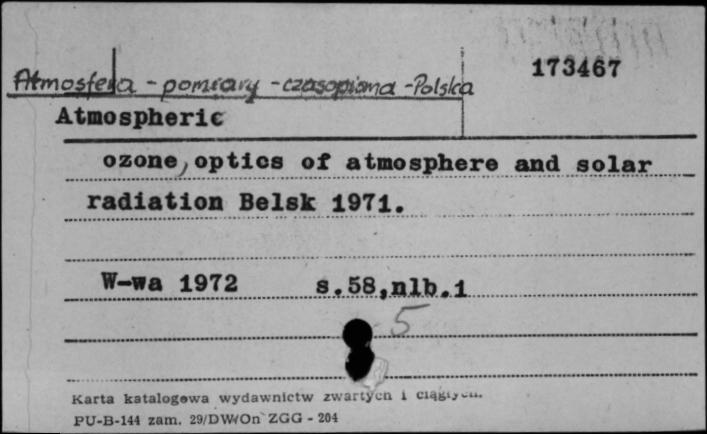 173467
Atmosfera - pomiary - czasopisma - Polska
Atmospheric
ozone, optics of atmosphere and solar
radiation Belsk 1971.
W-wa 1972 s.58,nlb.1
5
Karta katalogowa wydawnictw zwartych i ciągłych.
PU-B-144 zam. 29/DW/On ZGG - 204